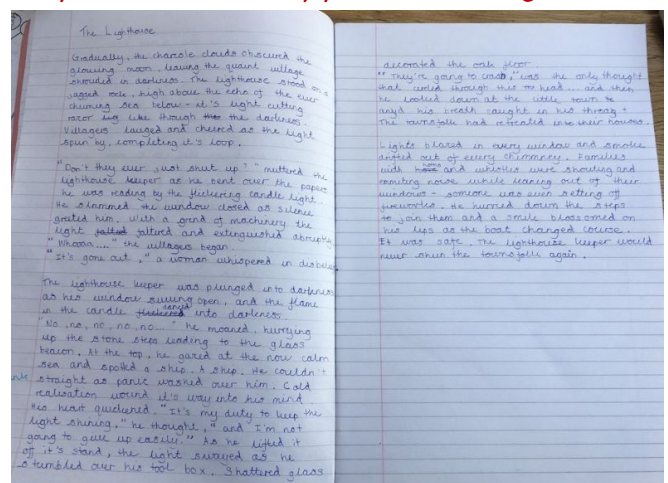 The Lighthouse
Gradually, the charcole clouds obscured the
glowing moon, leaving the quaint village
shrouded in darkness. The lighthouse stood on a
jagged rock, high above the echo of the ever
churning sea below - it's light cutting
razor like through the darkness.
Villagers lauged and cheered as the light
spun by, completing it's loop.
"Don't they ever just shut up?" muttered the
lighthouse keeper as he bent over the papers
he was reading by the flickering candle light.
He slammed the window closed as silence
greeted him. With a grind of machinery the
light faltered and extinguished abruptly.
"Whooa...." the villagers began.
"It's gone out," a woman whispered in disbelief.
The lighthouse keeper was plunged into darkness
as his window swung open, and the flame
in the candle danced into darkness.
"No, no, no, no, no...." he moaned, hurrying
up the stone steps leading to the glass
beacon. At the top, he gazed at the now calm
sea and spotted a ship. A ship. He couldn't
think straight as panic washed over him. Cold
realisation wound it's way into his mind.
His heart quickened. "It's my duty to keep the
light shining," he thought, "and I'm not
going to give up easily." As he lifted it
off it's stand, the light swayed as he
stumbled over his tool box. Shattered glass
decorated the oak floor.
"They're going to crash," was the only thought
that swirled through his head... and then
he looked down at the little town
his breath caught in his throat.
The townsfolk had retreated into their houses.
Lights blazed in every window and smoke
drifted out of every chimney. Families
with horns and whistles were shouting and
making noise while leaning out of their
windows - someone was even setting off
fireworks. He hurried down the steps
to join them and a smile blossomed on
his lips as the boat changed course.
It was safe. The lighthouse keeper would
never shun the townsfolk again.